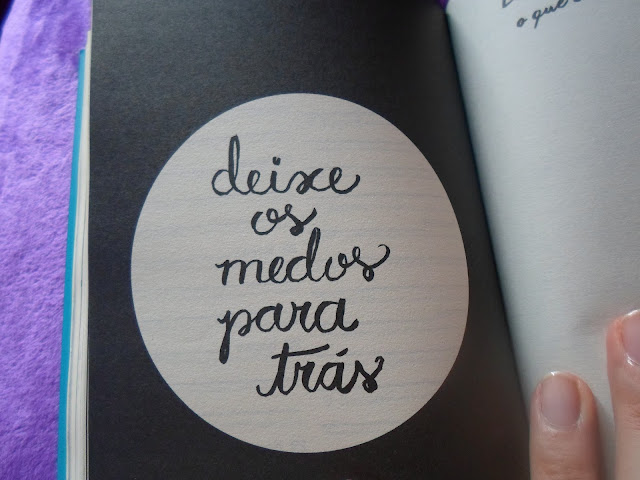 deixe
os
medos
para
trás
o que